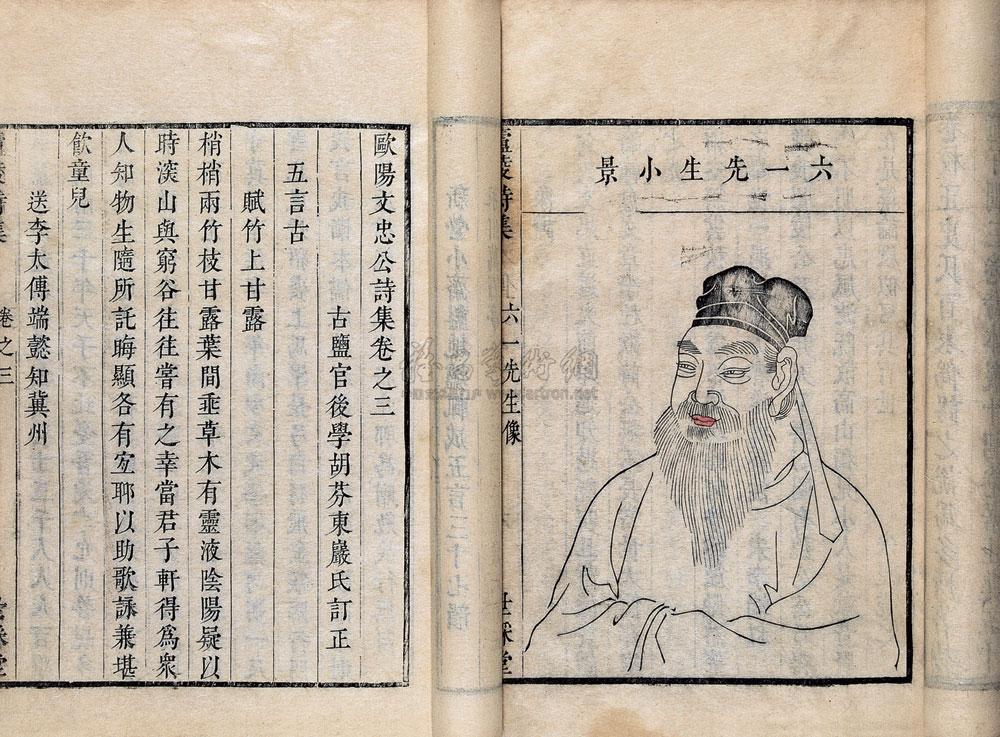 六一先生小景
廬陵詩集
六一先生像
世綵堂
歐陽文忠公詩集卷之三
古鹽官後學胡芬東巖氏訂正
五言古
賦竹上甘露
梢梢兩竹枝甘露葉間垂草木有靈液陰陽疑以
時深山與窮谷往往嘗有之幸當君子軒得為衆
人知物生隨所託晦顯各有宜耶以助歌詠兼堪
飲童兒
送李太傅端懿知冀州
卷之三